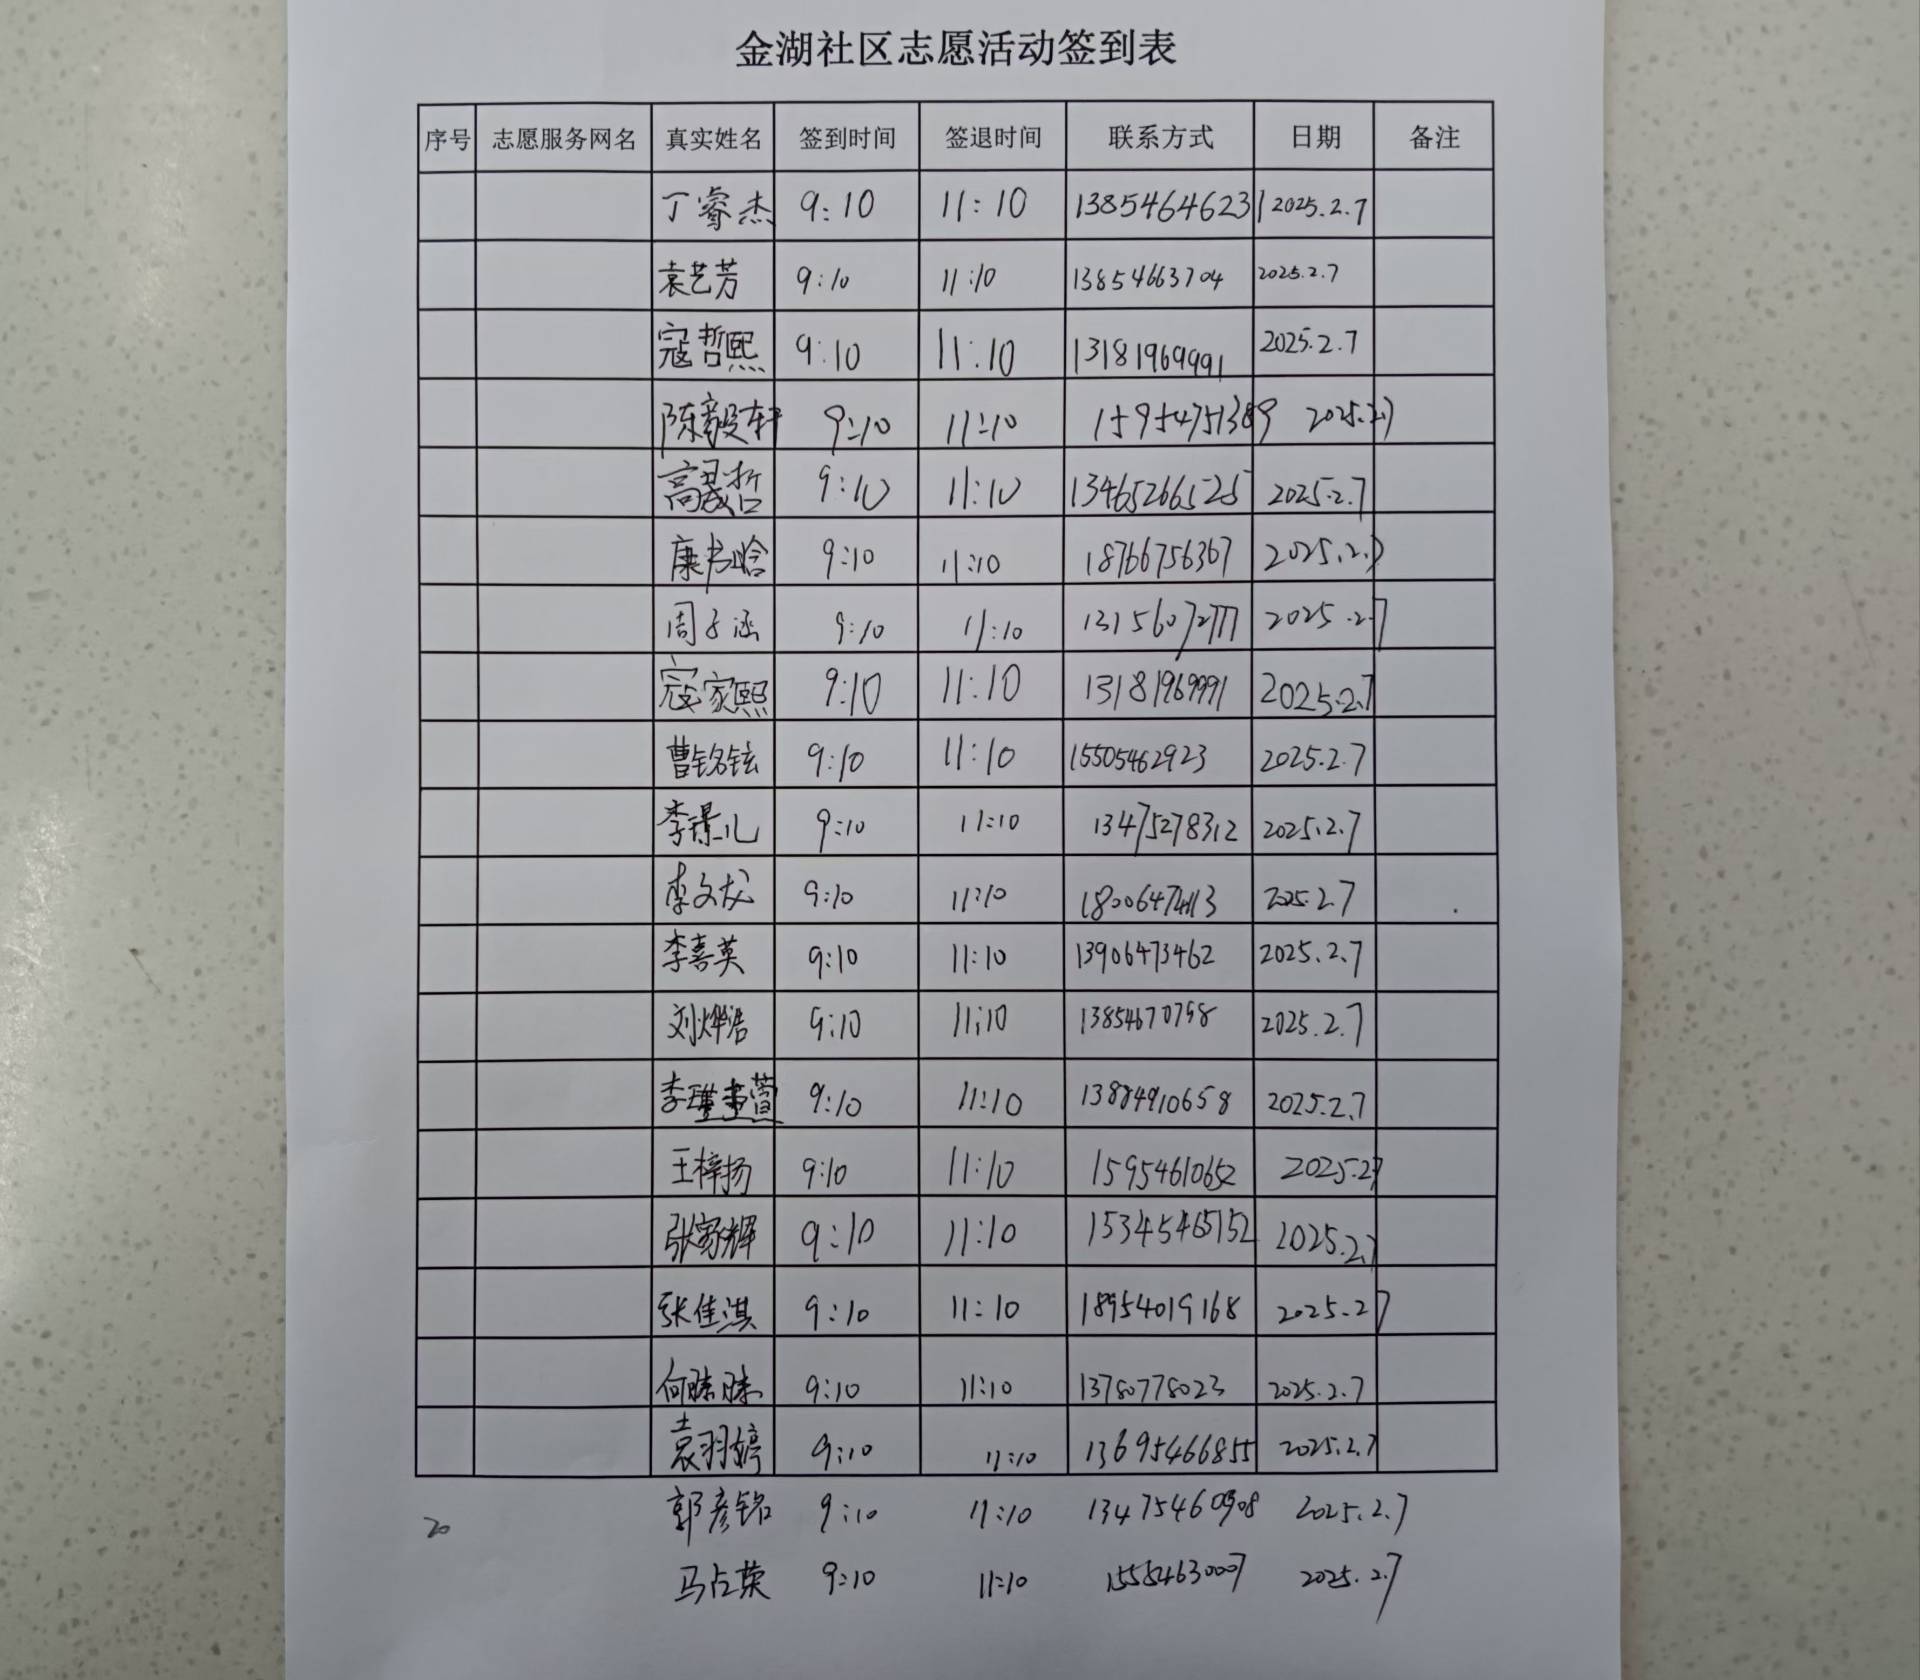 金湖社区志愿活动签到表
序号 志愿服务网名 真实姓名 签到时间 签退时间 联系方式 日期 备注
丁睿杰 9:10 11:10 13854646231 2025.2.7
袁艺芳 9:10 11:10 13854663704 2025.2.7
寇哲熙 9:10 11:10 13181969991 2025.2.7
陈毅轩 9:10 11:10 15954751389 2025.2.7
高晟哲 9:10 11:10 13465266525 2025.2.7
康书晗 9:10 11:10 18766756367 2025.2.7
周子涵 9:10 11:10 13156072777 2025.2.7
寇家熙 9:10 11:10 13181969991 2025.2.7
曹铭铉 9:10 11:10 15505462923 2025.2.7
李璟儿 9:10 11:10 13475278312 2025.2.7
李文龙 9:10 11:10 2025.2.7
李喜英 9:10 11:10 13906473462 2025.2.7
刘烨浩 9:10 11:10 13854670758 2025.2.7
李 萱 9:10 11:10 13884910658 2025.2.7
王梓扬 9:10 11:10 15954610652 2025.2.7
张家辉 9:10 11:10 15345465152 2025.2.7
张佳淇 9:10 11:10 18954019168 2025.2.7
何 9:10 11:10 13780778023 2025.2.7
袁羽婷 9:10 11:10 13695466855 2025.2.7
20 郭彦铭 9:10 11:10 2025.2.7
马占荣 9:10 11:10 15554630007 2025.2.7